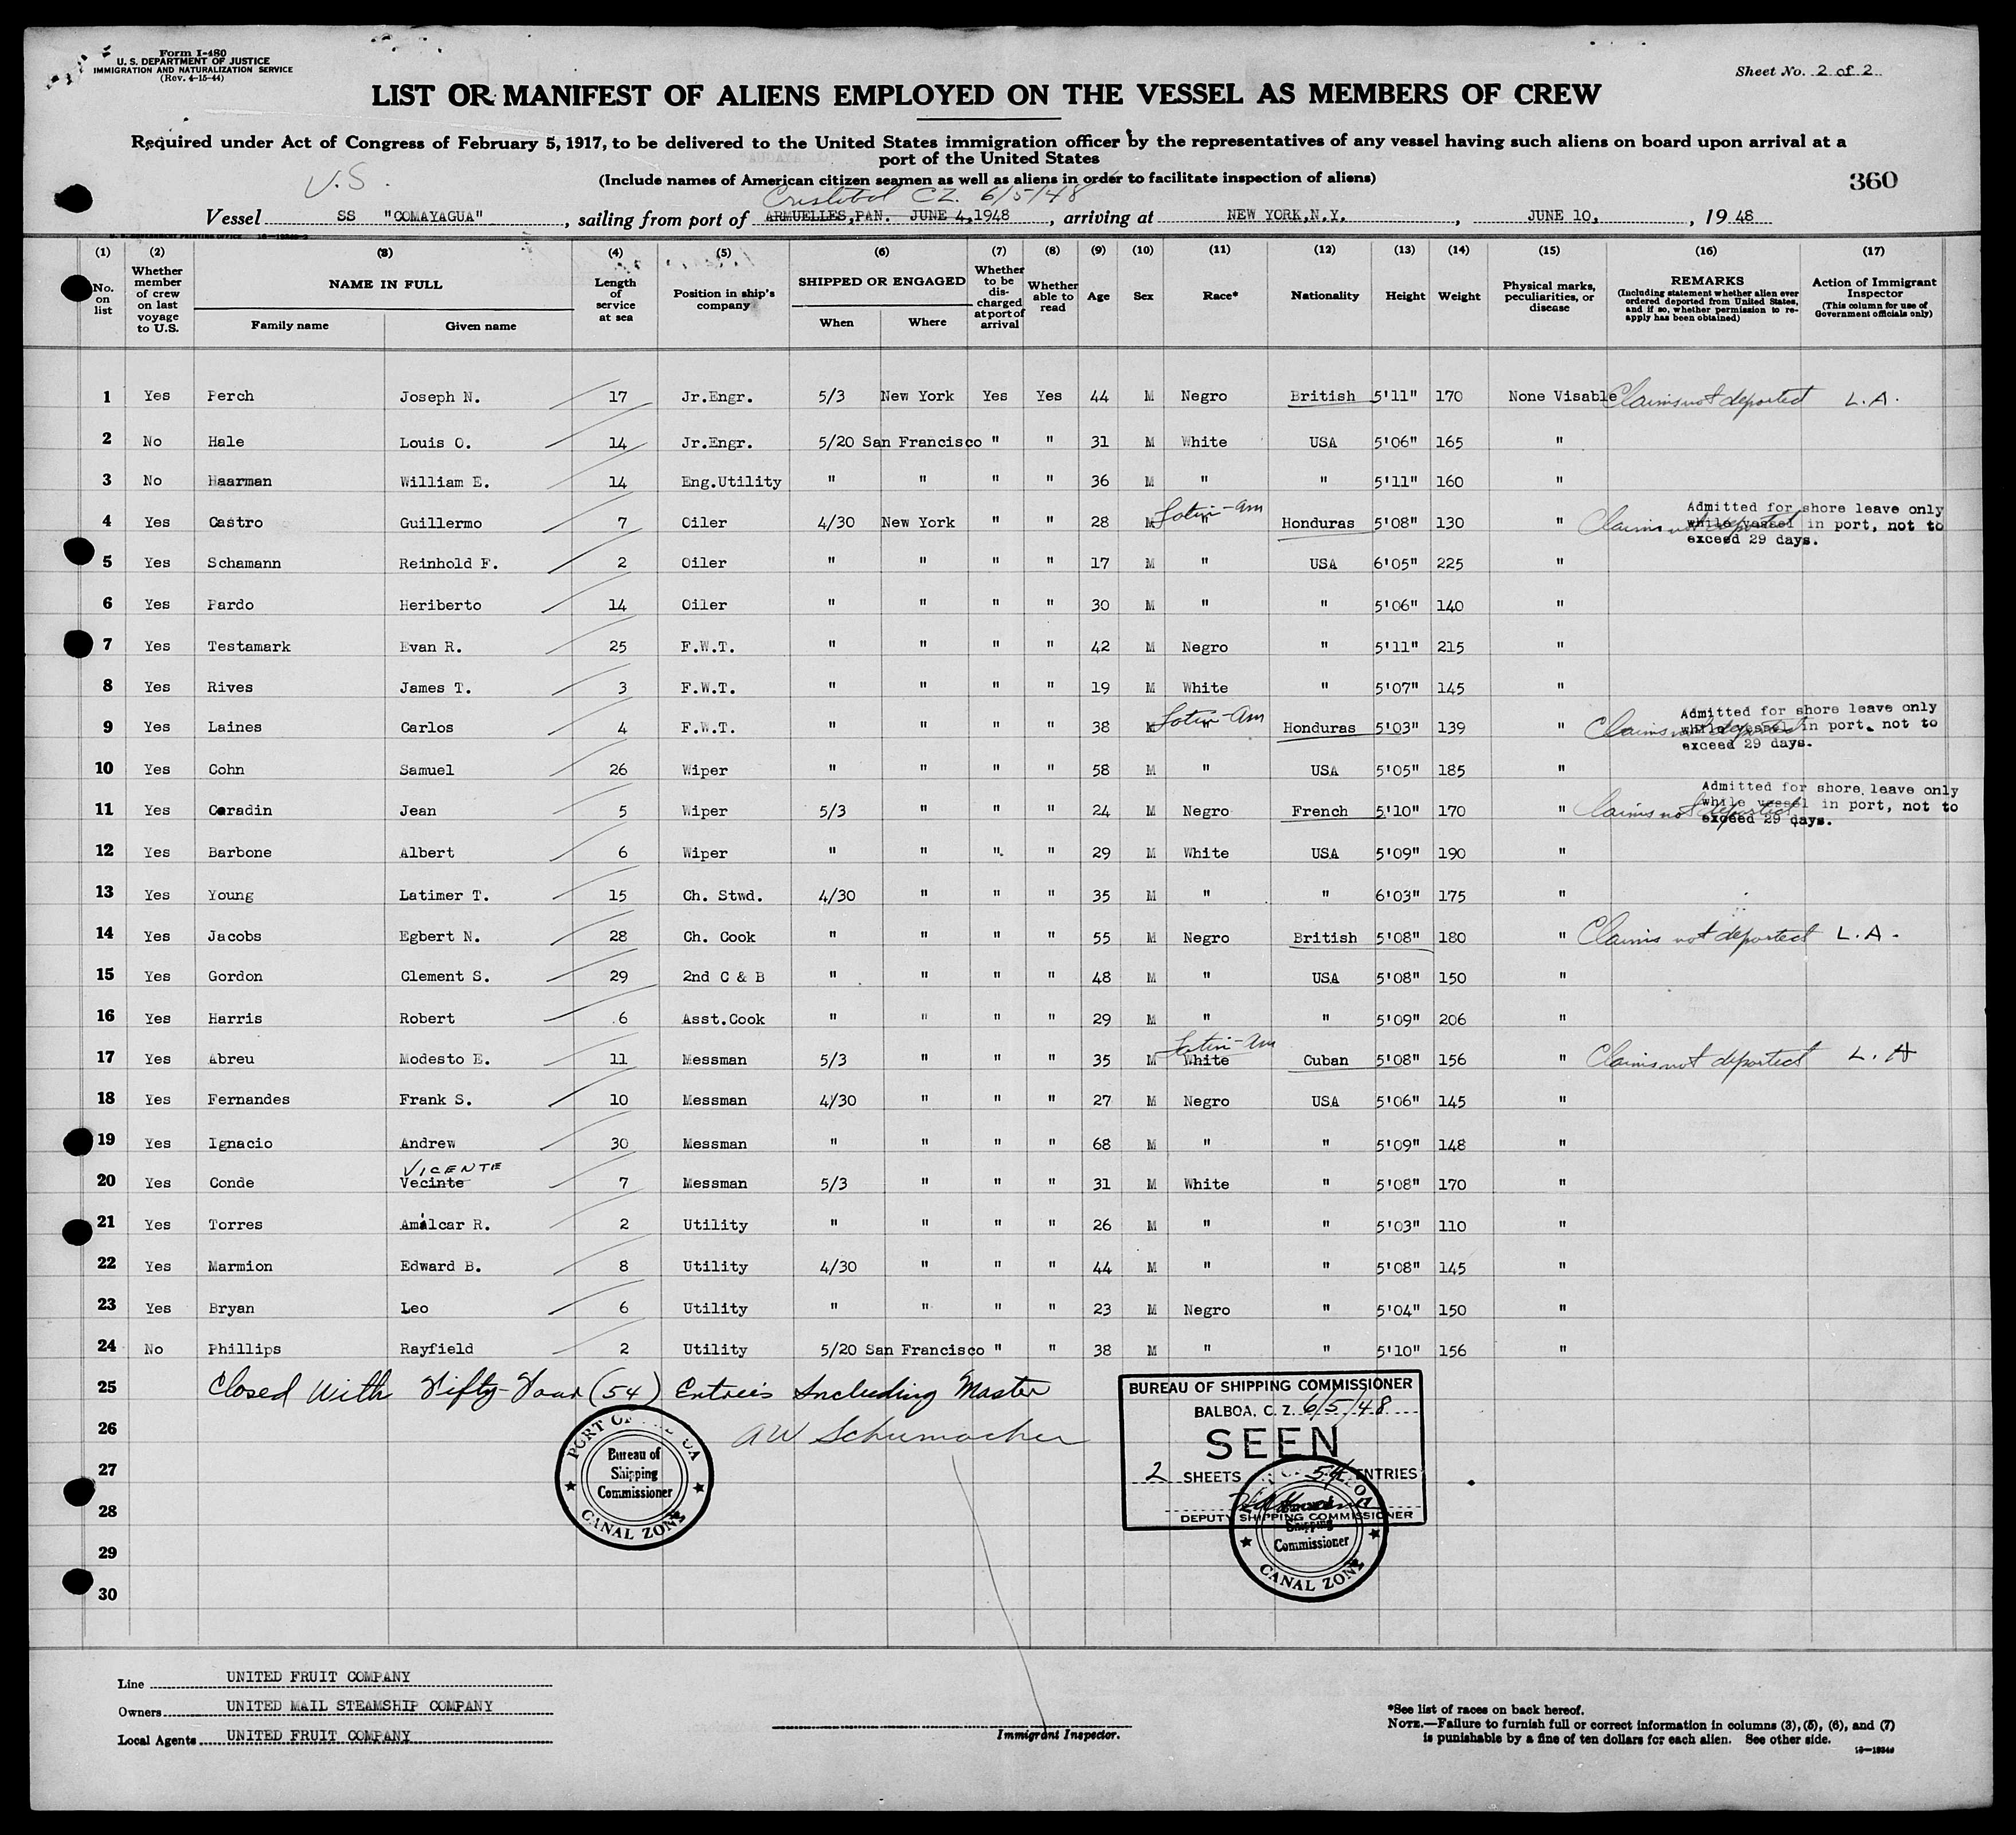 Form I-480
U. S. DEPARTMENT OF JUSTICE
IMMIGRATION AND NATURALIZATION SERVICE
(Rev. 4-15-44)
Sheet No. 2 of 2
LIST OR MANIFEST OF ALIENS EMPLOYED ON THE VESSEL AS MEMBERS OF CREW
Required under Act of Congress of February 5, 1917, to be delivered to the United States immigration officer by the representatives of any vessel having such aliens on board upon arrival at a
port of the United States
(Include names of American citizen seamen as well as aliens in order to facilitate inspection of aliens)
360
U.S.
Cristobal CZ. 6/5/48
Vessel SS "COMAYAGUA", sailing from port of ARMUELLES,PAN. JUNE 4,1948, arriving at NEW YORK,N.Y., JUNE 10, , 1948
(1) (2) (3) (4) (5) (6) (7) (8) (9) (10) (11) (12) (13) (14) (15) (16) (17)
No. on list
Whether member of crew on last voyage to U.S.
NAME IN FULL
Family name Given name
Length of service at sea
Position in ship's company
SHIPPED OR ENGAGED
When Where
Whether to be discharged at port of arrival
Whether able to read
Age
Sex
Race*
Nationality
Height
Weight
Physical marks, peculiarities, or disease
REMARKS
(Including statement whether alien ever ordered deported from United States, and if so, whether permission to re-apply has been obtained)
Action of Immigrant Inspector
(This column for use of Government officials only)
1 Yes Perch Joseph N. 17 Jr.Engr. 5/3 New York Yes Yes 44 M Negro British 5'11" 170 None Visable Claims not deported L.A.
2 No Hale Louis O. 14 Jr.Engr. 5/20 San Francisco " " 31 M White USA 5'06" 165 "
3 No Haarman William E. 14 Eng.Utility " " " " 36 M " " 5'11" 160 "
4 Yes Castro Guillermo 7 Oiler 4/30 New York " " 28 M " Latin-Am Honduras 5'08" 130 " Claims not deported Admitted for shore leave only while vessel in port, not to exceed 29 days.
5 Yes Schamann Reinhold F. 2 Oiler " " " " 17 M " USA 6'05" 225 "
6 Yes Pardo Heriberto 14 Oiler " " " " 30 M " " 5'06" 140 "
7 Yes Testamark Evan R. 25 F.W.T. " " " " 42 M Negro " 5'11" 215 "
8 Yes Rives James T. 3 F.W.T. " " " " 19 M White " 5'07" 145 "
9 Yes Laines Carlos 4 F.W.T. " " " " 38 M " Latin-Am Honduras 5'03" 139 " Claims not deported Admitted for shore leave only while vessel in port, not to exceed 29 days.
10 Yes Cohn Samuel 26 Wiper " " " " 58 M " USA 5'05" 185 "
11 Yes Caradin Jean 5 Wiper 5/3 " " " 24 M Negro French 5'10" 170 " Claims not deported Admitted for shore leave only while vessel in port, not to exceed 29 days.
12 Yes Barbone Albert 6 Wiper " " " " 29 M White USA 5'09" 190 "
13 Yes Young Latimer T. 15 Ch. Stwd. 4/30 " " " 35 M " " 6'03" 175 "
14 Yes Jacobs Egbert N. 28 Ch. Cook " " " " 55 M Negro British 5'08" 180 " Claims not deported L.A.
15 Yes Gordon Clement S. 29 2nd C & B " " " " 48 M " USA 5'08" 150 "
16 Yes Harris Robert 6 Asst.Cook " " " " 29 M " " 5'09" 206 "
17 Yes Abreu Modesto E. 11 Messman 5/3 " " " 35 M White Latin-Am Cuban 5'08" 156 " Claims not deported L.A
18 Yes Fernandes Frank S. 10 Messman 4/30 " " " 27 M Negro USA 5'06" 145 "
19 Yes Ignacio Andrew 30 Messman " " " " 68 M " " 5'09" 148 "
20 Yes Conde Vecinte VICENTE 7 Messman 5/3 " " " 31 M White " 5'08" 170 "
21 Yes Torres Amalcar R. 2 Utility " " " " 26 M " " 5'03" 110 "
22 Yes Marmion Edward B. 8 Utility 4/30 " " " 44 M " " 5'08" 145 "
23 Yes Bryan Leo 6 Utility " " " " 23 M Negro " 5'04" 150 "
24 No Phillips Rayfield 2 Utility 5/20 San Francisco " " 38 M " " 5'10" 156 "
25 Closed With Fifty-Four (54) Entries Including Master
26 AW Schumacher
27
28
29
30
PORT OF
Bureau of
Shipping
Commissioner
CANAL ZONE
BUREAU OF SHIPPING COMMISSIONER
BALBOA, C. Z. 6/5/48
SEEN
2 SHEETS 54 ENTRIES
DEPUTY SHIPPING COMMISSIONER
Shipping
Commissioner
CANAL ZONE
Line UNITED FRUIT COMPANY
Owners UNITED MAIL STEAMSHIP COMPANY
Local Agents UNITED FRUIT COMPANY
Immigrant Inspector.
*See list of races on back hereof.
NOTE.—Failure to furnish full or correct information in columns (3), (5), (6), and (7)
is punishable by a fine of ten dollars for each alien. See other side.